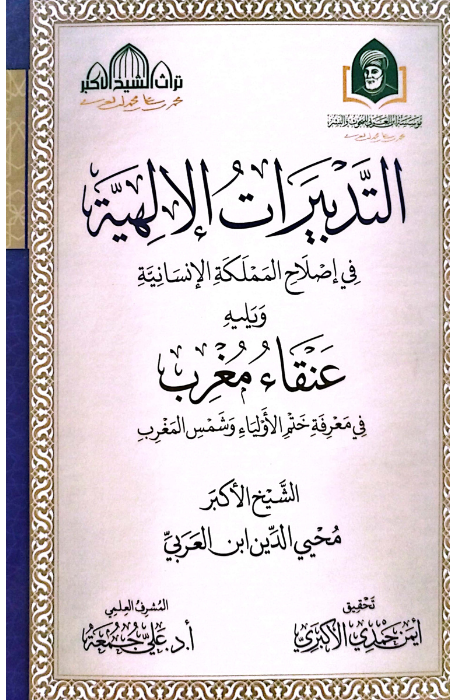 تراث الشيخ الأكبر
مؤسسة ابن العربي للبحوث والنشر
التَّدْبِيرَاتُ الإلهِيَّة
فِي إِصْلَاحِ المَمْلَكَةِ الإِنْسَانِيَّةِ
وَيَليهِ
عَنْقَاءُ مُغْرِب
فِي مَعْرِفَةِ خَتْمِ الأَوْلِيَاءِ وَشَمْسِ المَغْرِبِ
الشَّيْخ الأكبَر
مُحْيي الدِّين ابن العَرَبيِّ
تَحْقِيق
أيمن حَمْدِي الأَكْبَرِي
المُشرِف العِلمِي
أ.د. عَلِي جُمعَة